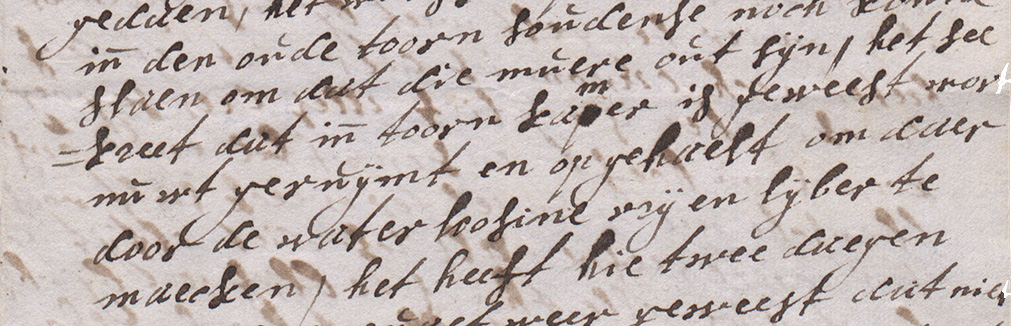 gedaen, het
in den oude toorn soudense noch
slaen om dat die muere out sijn, het see
=kreet dat in toorn kamer is geweest wor
nu wt geruijmt en opgehaelt om daer
door de water loosine vrij en lijber te
maecken, het heeft hie twee daegen
weer geweest dat nie